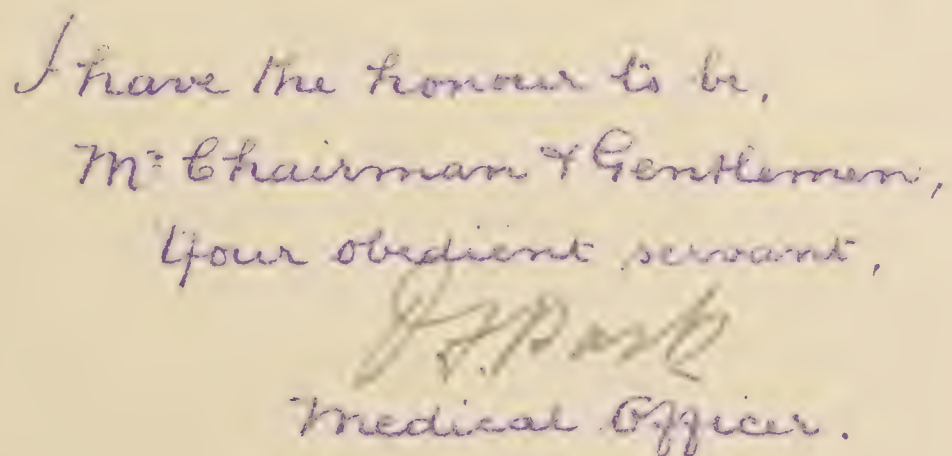 I have the honour to be,
Mr Chairman & Gentlemen,
Your obedient servant,
Park
Medical Officer.